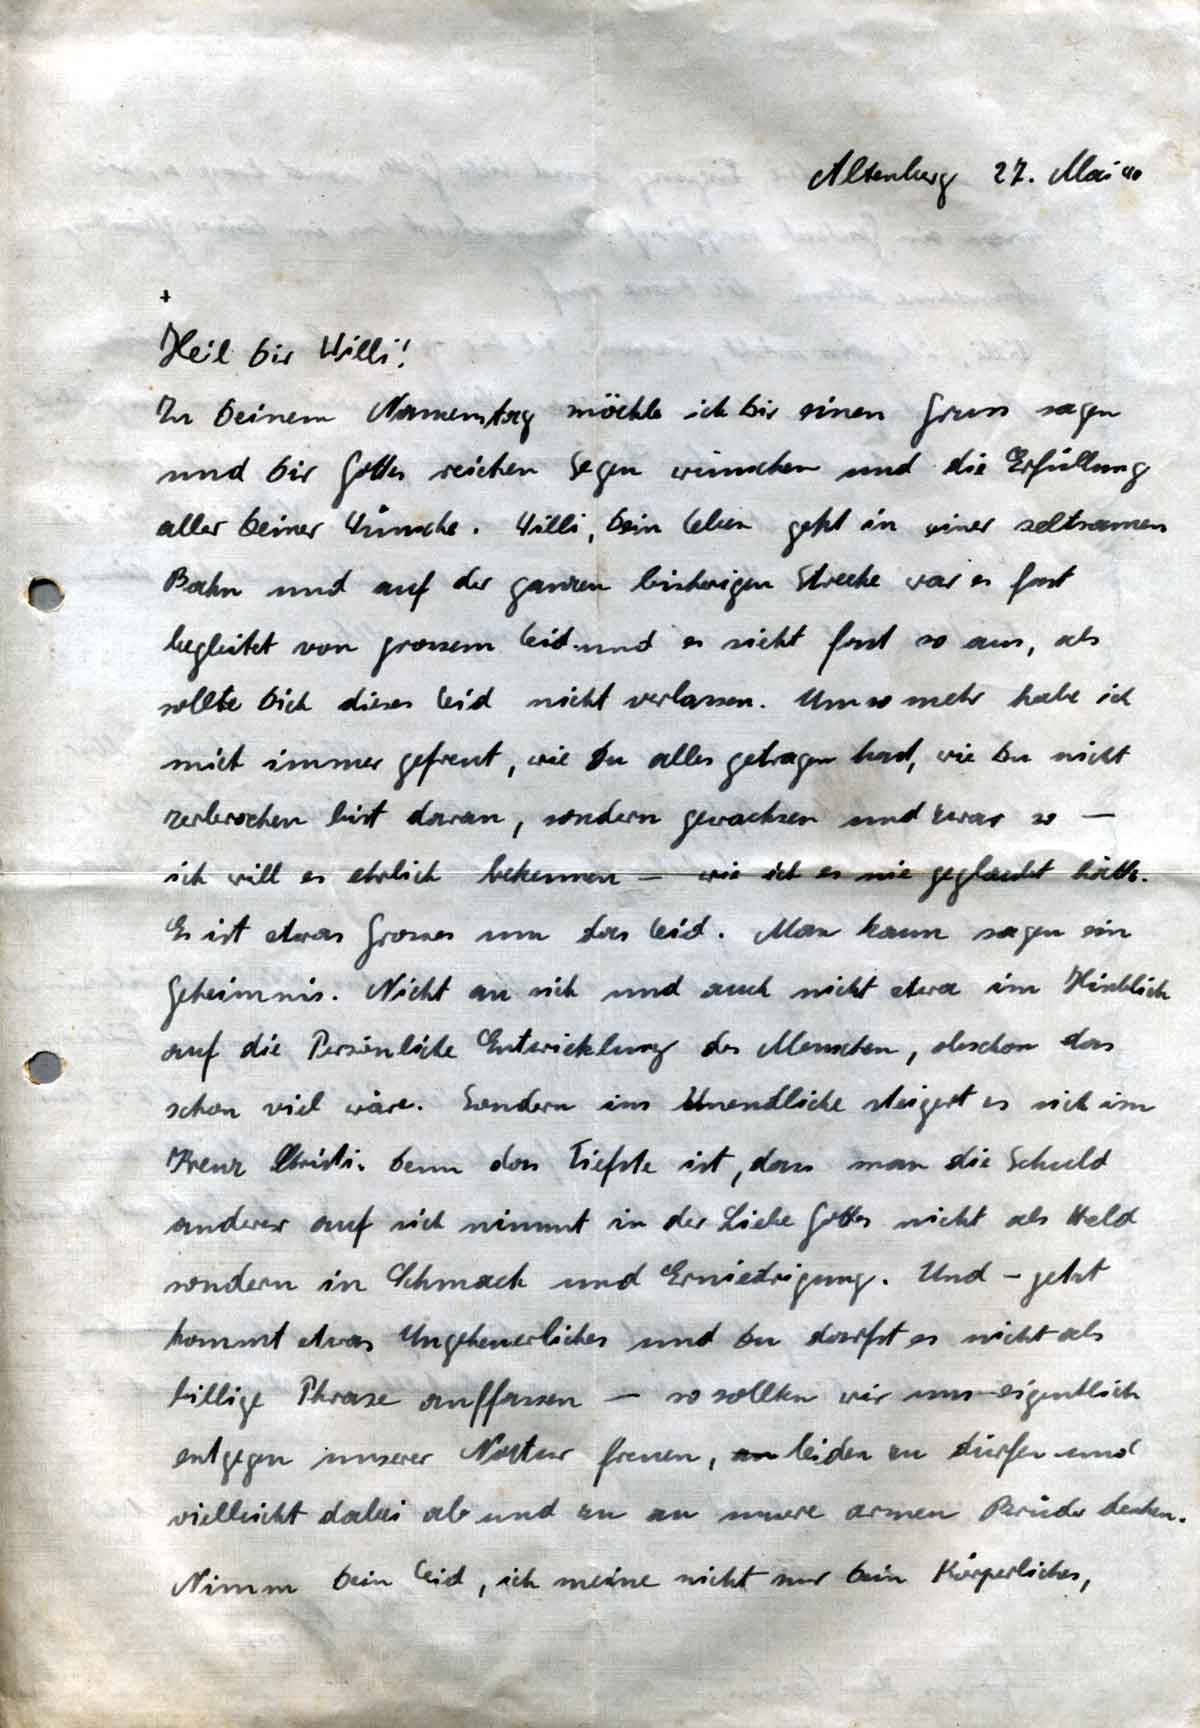 Altenberg 27. Mai 40
+
Heil Dir Willi!
Zu Deinem Namenstag möchte ich Dir einen Gruss sagen
und Dir Gottes reichen Segen wünschen und die Erfüllung
aller Deiner Wünsche. Willi, Dein Leben geht in einer seltsamen
Bahn und auf der ganzen bisherigen Strecke war es fast
begleitet von grossem Leid und es sieht fast so aus, als
sollte Dich dieses Leid nicht verlassen. Umso mehr habe ich
mich immer gefreut, wie Du alles getragen hast, wie Du nicht
zerbrochen bist daran, sondern gewachsen und zwar so —
ich will es ehrlich bekennen — wie ich es nie geglaubt hätte.
Es ist etwas Grosses um das Leid. Man kann sagen ein
Geheimnis. Nicht an sich und auch nicht etwa im Hinblick
auf die Persönliche Entwicklung des Menschen, obschon das
schon viel wäre. Sondern ins Unendliche steigert es sich im
Kreuz Christi. Denn das Tiefste ist, dass man die Schuld
anderer auf sich nimmt in der Liebe Gottes nicht als Held
sondern in Schmach und Erniedrigung. Und – jetzt
kommt etwas Ungeheuerliches und Du darfst es nicht als
billige Phrase auffassen — so sollten wir uns eigentlich
entgegen unserer Natur freuen, leiden zu dürfen und
vielleicht dabei ab und zu an unsere armen Brüder denken.
Nimm Dein Leid, ich meine nicht nur Dein Körperliches,